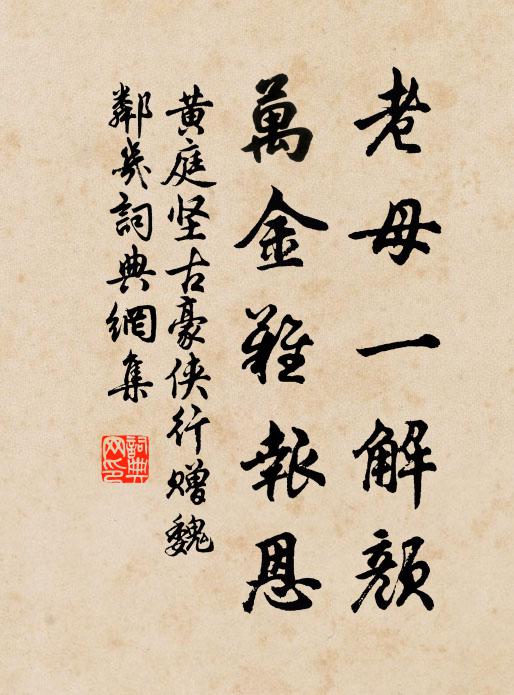 老母一解顔
萬金難報恩
黄庭坚古豪侠行赠魏
鄰幾詞典網集
詞典网印